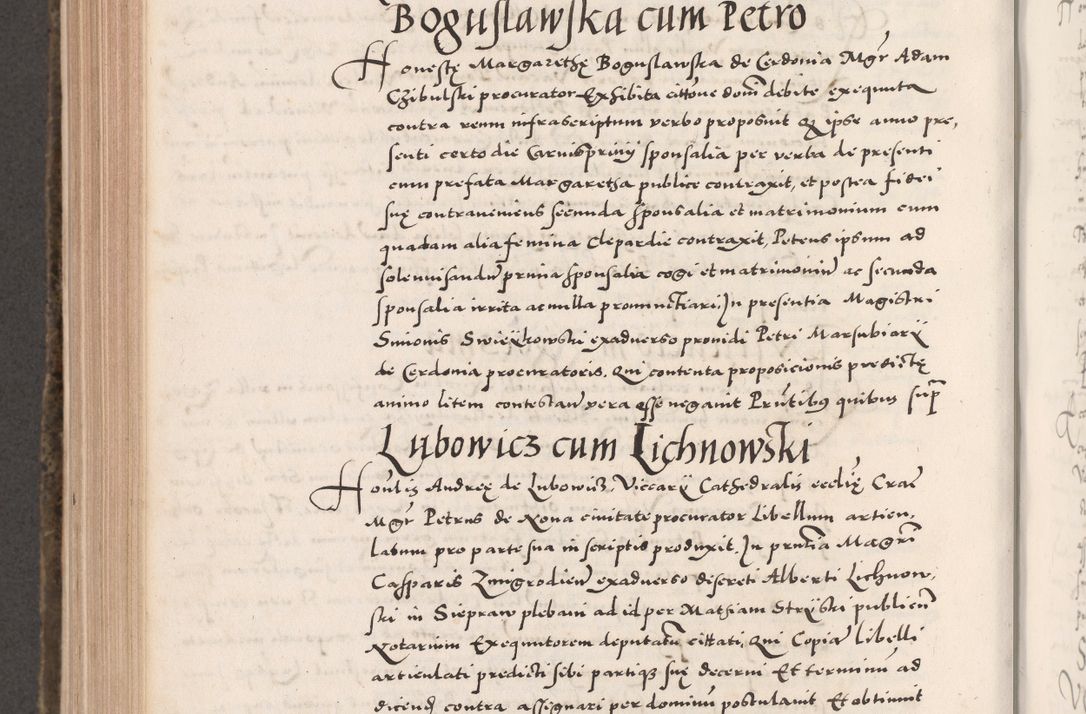 Boguslawska cum Petro
Honestę Margarethę Boguslawska de Cerdonia Mgr Adam
Czibulski procurator Exhibita cittõne dom̃ debite exequuta
contra reum infrascriptum verbo proposuit Q ipse anno pre,
senti certo die Carnisprivij sponsalia per verba de presenti
cum prefata Margaretha publice contraxit, et postea fidei
suę contraveniens secunda sponsalia et matrimonium cum
quadam alia femina Clepardie contraxit, Petens ipsum ad
solennisandũ prima sponsalia cogi et matrimoniũ ac secunda
sponsalia irrita ac nulla pronunctiari, In presentia Magistri
Simonis Swieÿkowski exadverso providi Petri Marsubiarÿ
de Cerdonia procuratoris. Qui contenta proposicionis predictę
animo litem contestan̄ vera esse negavit Prñtibus quibus sup̄
Lubowicz cum Lichnowski
Hoñlis Andreę de Lubowicz, Viccarÿ Cathedralis eccłię Crac̄
Mgr̄ Petrus de Nova civitate procurator Libellum articu,
latum pro parte sua in scriptis produxit. In prñtia Magr̄i
Casparis Zmigrodien̄ exadverso discreti Alberti Lichnow,
ski in Siepraw plebani ad id per Mathiam Strÿski publicũ
Notarium Exequutorem deputatũ cittati, Qui Copiã libelli
articulati predicti sibi partique suę decerni Et terminũ ad
dicend contra assignari per dominũ postulavit Et obtinuit